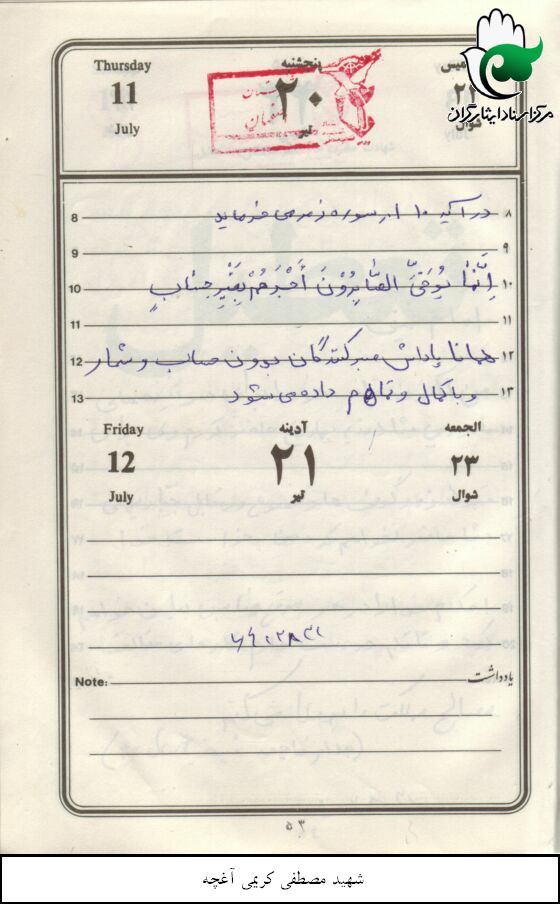 مرکز اسناد ایثارگران
Thursday پنجشنبه
11 ۲۰ ۲۲
July تیر شوال
8 در آیه ۱۰ از سوره زمر می فرماید ۸
9 ۹
10 اِنَّمَا یُوَفَّیَ الصَّابِرُوْنَ أَجْرَهُمْ بِغَیْرِ حِسَابٍ ۱۰
11 ۱۱
12 همانا پاداش صبر کنندگان بدون حساب و شمار ۱۲
13 و با کمال و تمام داده می شود ۱۳
Friday آدینه الجمعه
12 ۲۱ ۲۳
July تیر شوال
Note: یادداشت
۵۳
شهید مصطفی کریمی آغچه